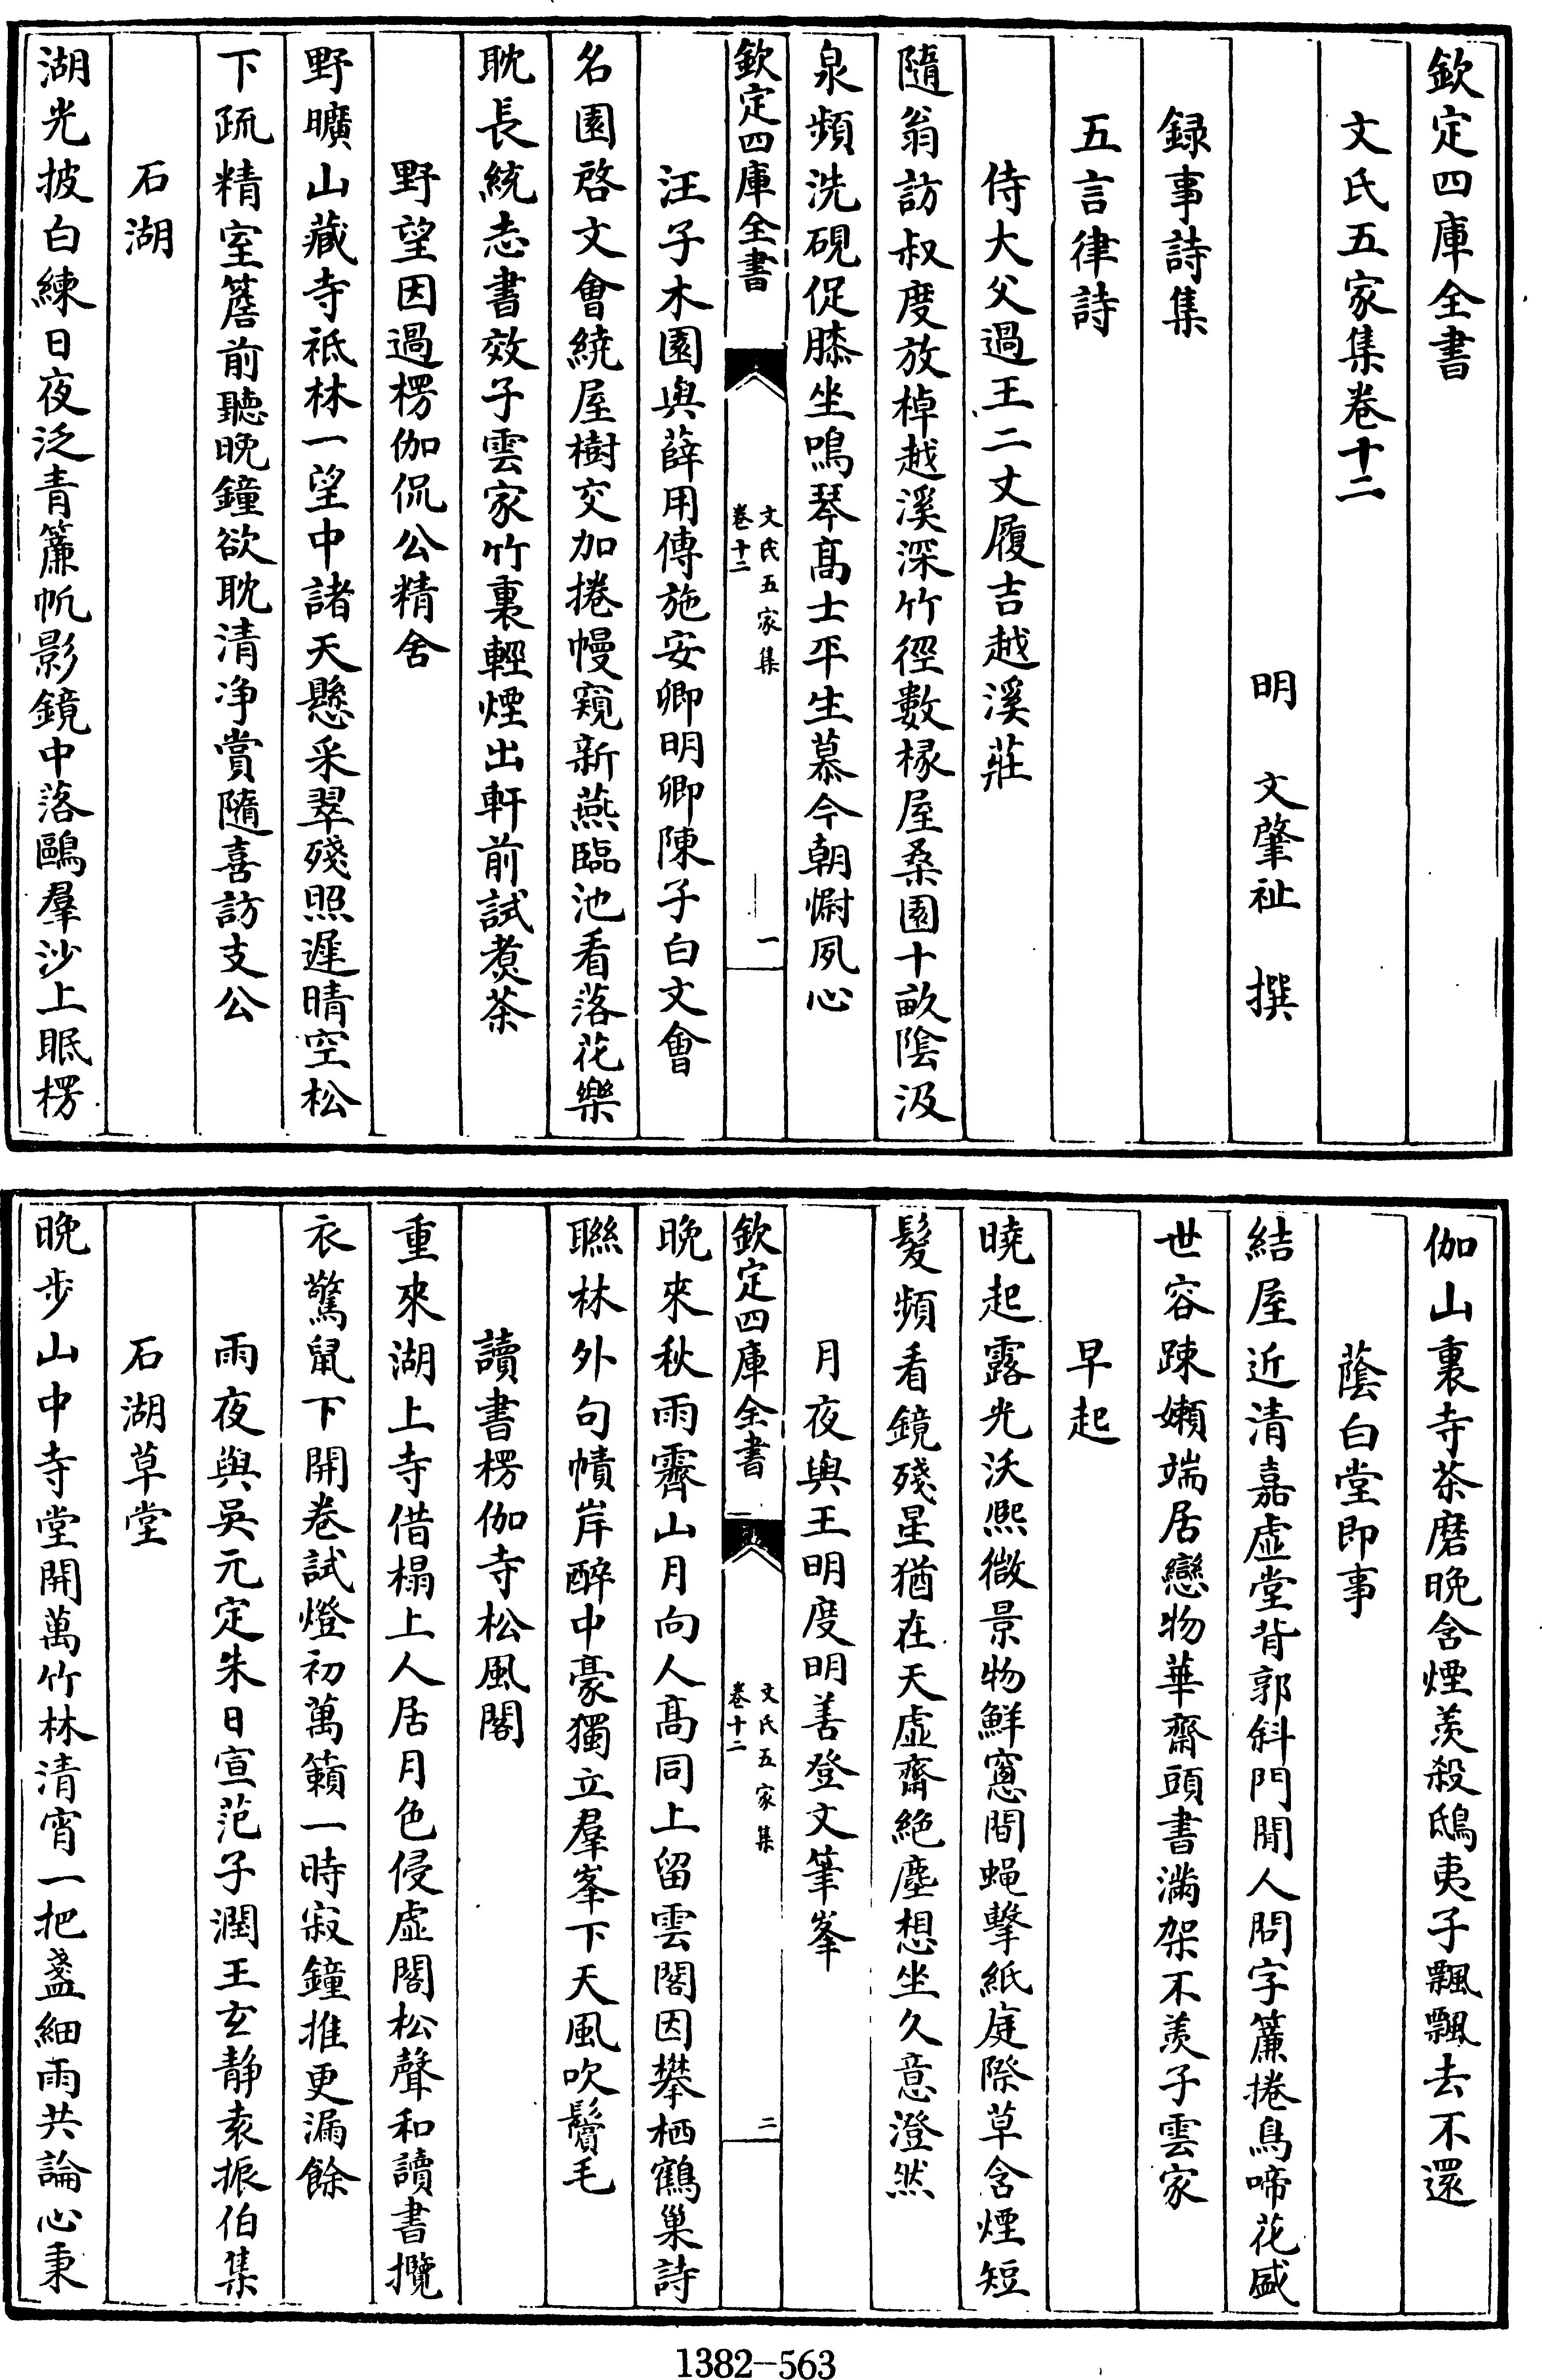 欽定四庫全書
文氏五家集卷十二
明 文肇祉 撰
録事詩集
五言律詩
侍大父過王二丈履吉越溪莊
隨翁訪叔度放棹越溪深竹徑數椽屋桑園十畝陰汲
泉頻洗硯促膝坐鳴琴髙士平生慕今朝慰夙心
欽定四庫全書
文氏五家集
卷十二
一
汪子木園與薛用傳施安卿明卿陳子白文會
名園啓文會繞屋樹交加捲幔窺新燕臨池看落花樂
耽長統志書效子雲家竹裏輕煙出軒前試煮茶
野望因過楞伽侃公精舍
野曠山藏寺祇林一望中諸天懸采翠殘照遲晴空松
下疏精室簷前聽晚鐘欲耽清净賞隨喜訪支公
石湖
湖光披白練日夜泛青簾帆影鏡中落鷗羣沙上眠楞
伽山裏寺茶磨晚含煙羡殺鴟夷子飄飄去不還
蔭白堂即事
結屋近清嘉虚堂背郭斜門閒人問字簾捲鳥啼花盛
世容踈嬾端居戀物華齋頭書滿架不羡子雲家
早起
曉起露光沃熙微景物鮮窻間蠅擊紙庭際草含煙短
髮頻看鏡殘星猶在天虚齋絶塵想坐久意澄然
月夜與王明度明善登文筆峯
欽定四庫全書
文氏五家集
卷十二
二
晚來秋雨霽山月向人高同上留雲閣因攀栖鶴巢詩
聯林外句幘岸醉中豪獨立羣峯下天風吹鬢毛
讀書楞伽寺松風閣
重來湖上寺借榻上人居月色侵虚閣松聲和讀書攬
衣驚鼠下開卷試燈初萬籟一時寂鐘推更漏餘
雨夜與吳元定朱日宣范子潤王玄静袁振伯集
石湖草堂
晚步山中寺堂開萬竹林清宵一把盞細雨共論心秉
1382-563